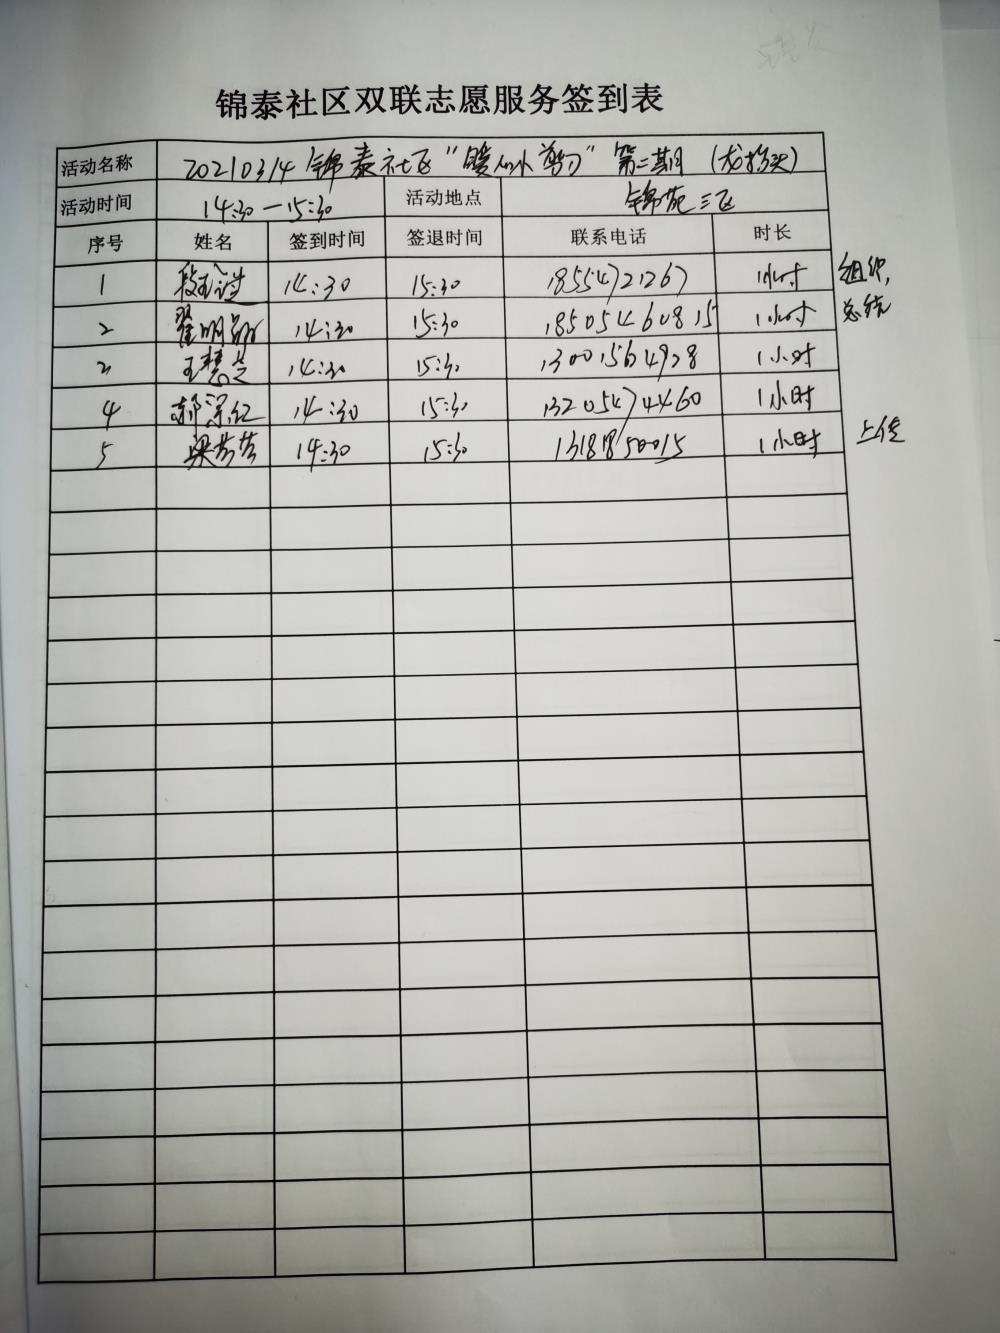 锦泰社区双联志愿服务签到表
活动名称 20210314 锦泰社区“暖心小剪刀”第二期 (龙抬头)
活动时间 14:30—15:30 活动地点 锦苑三区
序号 姓名 签到时间 签退时间 联系电话 时长
1 段 14:30 15:30 18554721267 1小时 组织,
总结
2 翟明 14:30 15:30 18505460815 1小时
3 王慧芝 14:30 15:30 13001564928 1小时
4 郝 红 14:30 15:30 13205474460 1小时
5 梁芳芳 14:30 15:30 13181850015 1小时 上传